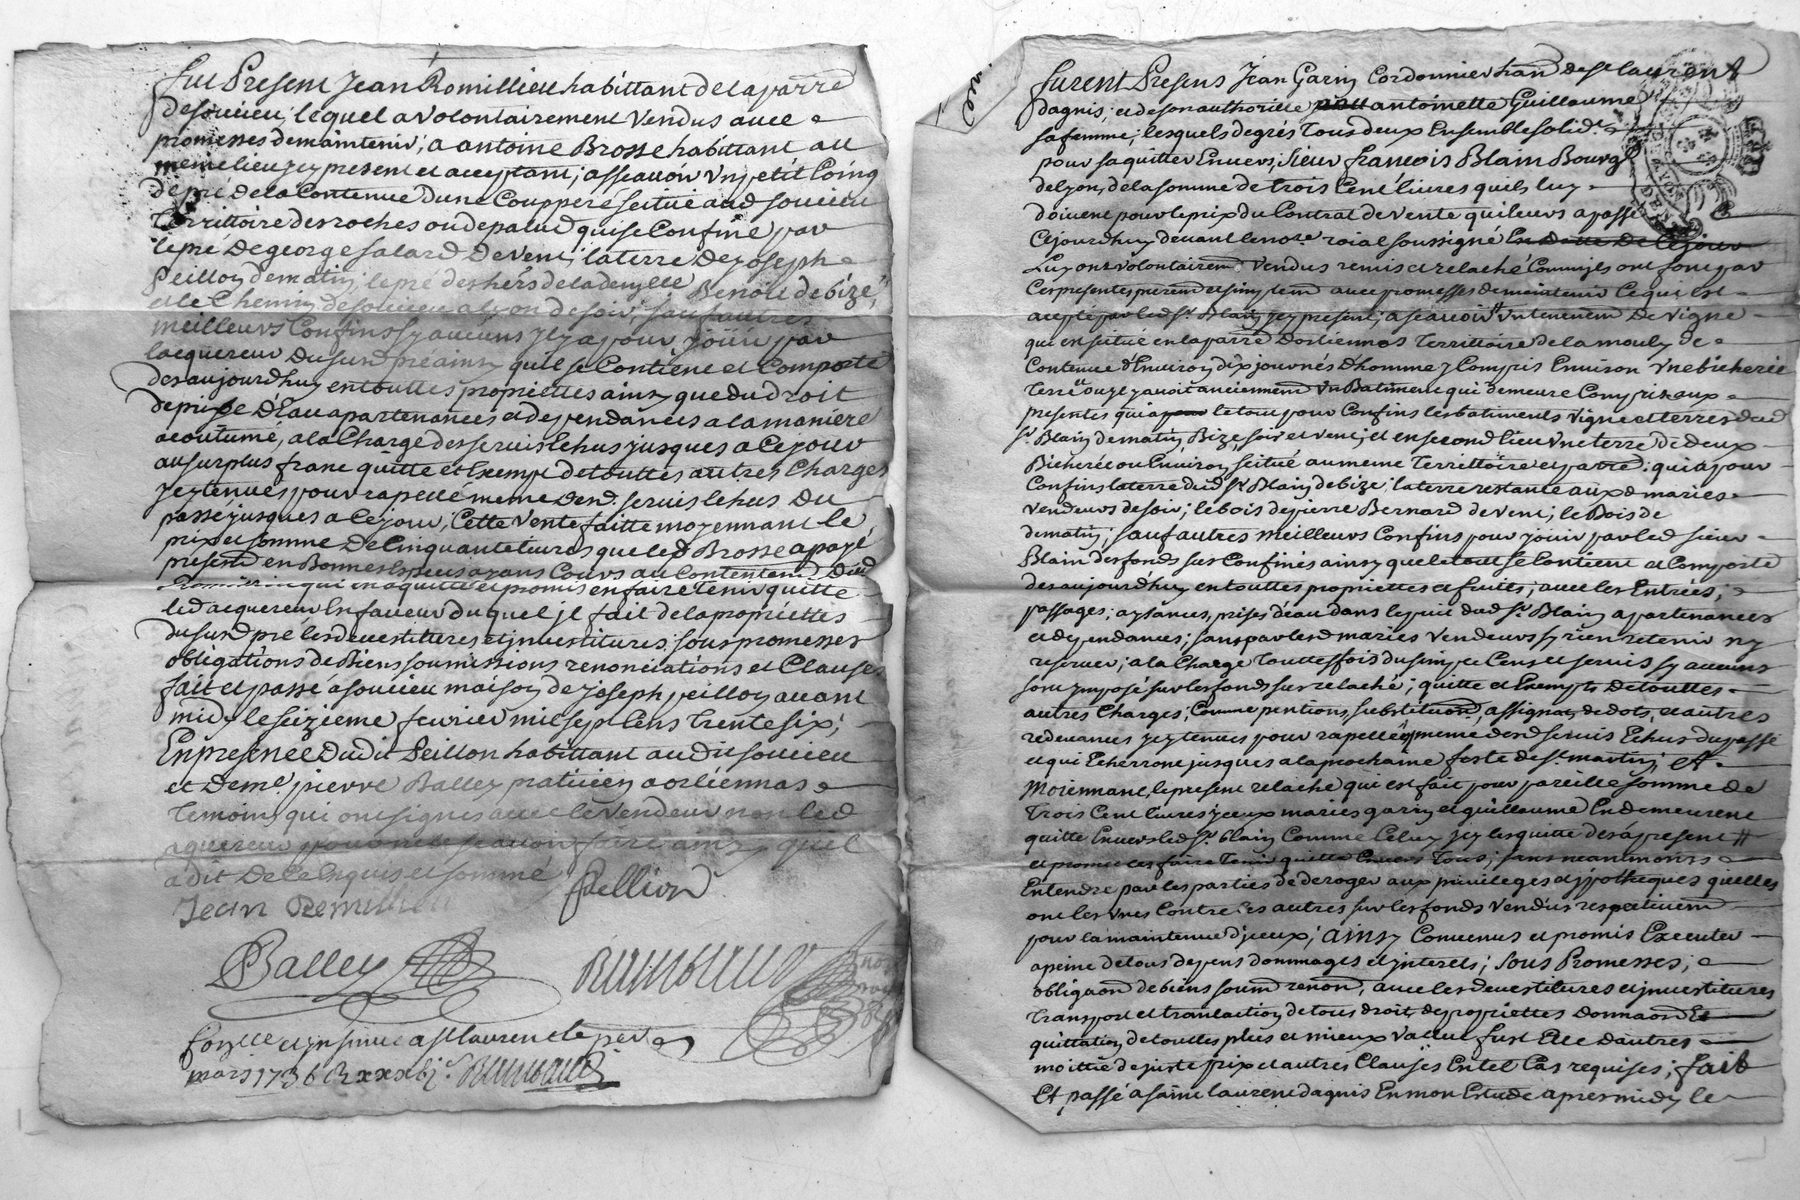 fut Present Jean Romillieu habittant de la parre
de soucieu, lequel a volontairement vendus avec
promesses de maintenir, a antoine Brosse habittant au
meme lieu jcy present et acceptant; assavoir un petit Coing
de pré de la Contenue d'une Coupperé scitué aud soucieu
Territtoire des roches ou de palud qui se Confine par
le pré De george salard De vent, la terre De joseph
Peillon de matin, le pré des hers de la demlle Benoite de bize,
et le Chemin de soucieu a lyon de soir, sauf autres
meilleurs Confins sy aucuns jl y a pour jouir par
lacquereur Du susd pré ainsy quil se Contient et Comporte
des aujourdhuy en touttes propriettes ainsy que du droit
de prise d'Eau apartenances et dependances a la maniere
acoutumé, a la Charge des servis Echus jusques a Ce jour
au surplus franc quitte et Exempt de touttes autres Charges
jcy tenues pour rapellé meme desd servis Echus Du
passé jusques a Ce jour; Cette vente faitte moyennant le
prix et somme De Cinquante livres que led Brosse a payé
present en Bonnes Especes ayans Cours au Contentement Dud
Romillieu qui en a quitté et promis en faire tenir quitte
led acquereur En faveur du quel jl fait de la propriettes
du susd pré les devestitures et jnvestitures sous promesses
obligations de Biens soumissions renonciations et Clauses
fait et passé a soucieu maison de joseph peillon avant
midy le seizieme fevrier mil sept Cens trente six;
En presence Dudit Peillon habittant au dit soucieu
et De me. pierre Balley praticien a orliennas
Temoins qui ont signés avec le vendeur non led
aquereur pour ne le scavoir faire ainsy quel
a dit De Ce Enquis et sommé
Jean Remillieu Pellion
Balley
Conllé et jnsinué a st laurent le per
mars 1736
furent Presens Jean Garin Cordonnier hant de st laurent
dagnis, et de son authoritté antoinette Guillaume
sa femme; lesquels de grés tous deux Ensemble solidt
pour saquitter Envers, Sieur françois Blain Bourgs
de lyon, de la somme de trois Cent livres quils luy
doivent pour le prix du Contrat de vente qui leurs a passé
Cejourdhuy devant le nore roial soussigné En datte De Cejour
Luy ont volontairemt vendus remis et relaché Comme jls ont font par
Ces presentes puremt et simplemt avec promesses de maintenir Ce qui est
accepté par led sr Blain jcy present, a scavoir un tenement De vigne
qui en scitué en la parre d'orliennas Territtoire de la mouly de
Contenue d'Environ dix journés D'homme y Compris Environ une bicherée
Terre ou jl y avoit anciennemt un Batiment qui demeure Compris aux
presentes qui a le tout pour Confins les batiments vigne et terres dud
sr Blain de matin, Bize, soir et vent; et en second lieu une terre de deux
Bicherée ou Environ scitué au meme Territtoire et parre, qui a pour
Confins la terre dud sr Blain de bize; la terre restante aux d maries
vendeurs de soir; le bois de pierre Bernard de vent; le Bois de
de matin; sauf autres meilleurs Confins pour jouir par led sieur
Blain des fonds sus Confinés ainsy que le tout se Contient et Comporte
des aujourdhuy en touttes propriettes et fruits; avec les Entrées,
passages, aysances, prises deau dans le puit dud sr Blain apartenances
et dependances; sans par lesd maries vendeurs sy rien retenir ny
reserver; a la Charge Touttesfois du simple Cens et servis sy aucuns
sont jmposé sur les fonds sus relaché; quitte et Exempts de touttes
autres Charges, Comme pentions, substitutions, assignat, de dots, et autres
redevances jcy tenues pour rapellée meme desd servis Echus du passé
et qui Echerront jusques a la prochaine feste de st martin; et
Moiennant, le present relaché qui est fait pour pareille somme de
Trois Cent livres jceux maries garin et guillaume En demeurent
quitte Envers led sr blain Comme Celuy jcy les quitte des a present
et promet les faire tenir quitte Envers Tous; sans neantmoins
Entendre par les parties de deroger aux privileges et jpotheques quelles
ont les unes Contre les autres sur les fonds vendus respectivemt
pour la maintenue d'jceux; ainsy Convenus et promis Executer
a peine de tous depens dommages et jnterets; sous Promesses,
obligaon de biens soumn renon, avec les devestitures et jnvestitures
Transport et translaction de tous droit, de propriettes donnaon Et
quittation de touttes plus et mieux value fust Elle d'autres
moittié de juste prix et autres Clauses En tel Cas requises; fait
Et passé a saint laurent dagnis En mon Etude apres midy le